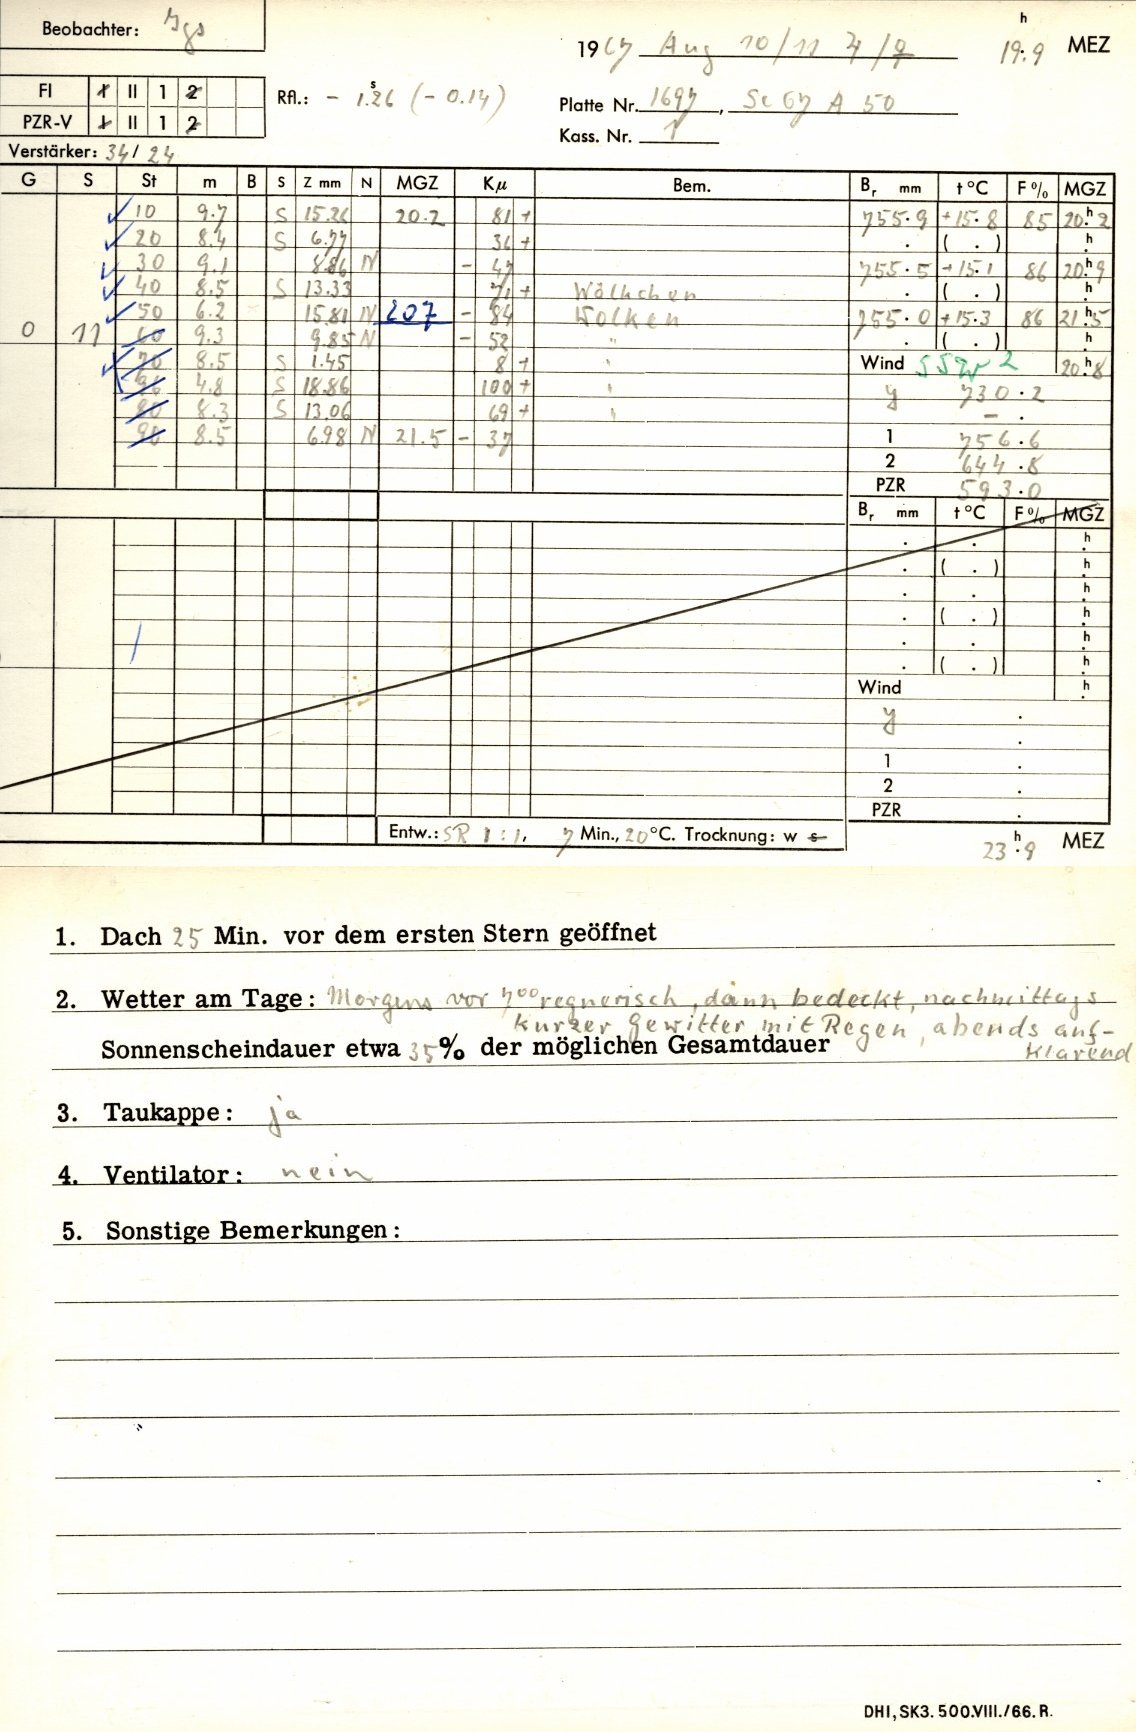 Beobachter: Jgs
1967 Aug 10/11 4/5 19h.9 MEZ
FI I II 1 2
PZR-V I II 1 2
Rfl.: - 1s.26 (- 0.14)
Platte Nr. 1697, Sc 67 A 50
Kass. Nr. 1
Verstärker: 34/24
G S St m B S Z mm N MGZ Kμ Bem. Br mm t °C F % MGZ
10 9.7 S 15.26 20.2 81 + 755.9 +15.8 85 20h.2
20 8.4 S 6.77 36 + ( . ) h
30 9.1 8.86 N - 47 755.5 +15.1 86 20h.9
40 8.5 S 13.33 71 + Wölkchen ( . ) h
50 6.2 15.81 N 207 - 84 Wolken 755.0 +15.3 86 21h.5
0 11 60 9.3 9.85 N - 52 " ( . ) h
70 8.5 S 1.45 8 + " Wind SSW 2 20h.8
96 4.8 S 18.86 100 + " y 730.2
80 8.3 S 13.06 69 + " - .
90 8.5 6.98 N 21.5 - 37 1 756.6
2 644.8
PZR 593.0
Br mm t °C F % MGZ
. . h
. ( . ) h
. . h
. ( . ) h
. . h
. ( . ) h
Wind h
y .
.
1 .
2 .
PZR .
Entw.: SR 1:1, 7 Min., 20 °C. Trocknung: w s
23h.9 MEZ
1. Dach 25 Min. vor dem ersten Stern geöffnet
2. Wetter am Tage: Morgens vor 7 00 regnerisch, dann bedeckt, nachmittags
kurzer Gewitter mit Regen, abends auf-
Sonnenscheindauer etwa 35 % der möglichen Gesamtdauer
klarend
3. Taukappe: ja
4. Ventilator: nein
5. Sonstige Bemerkungen:
DHI, SK3. 500.VIII./66. R.